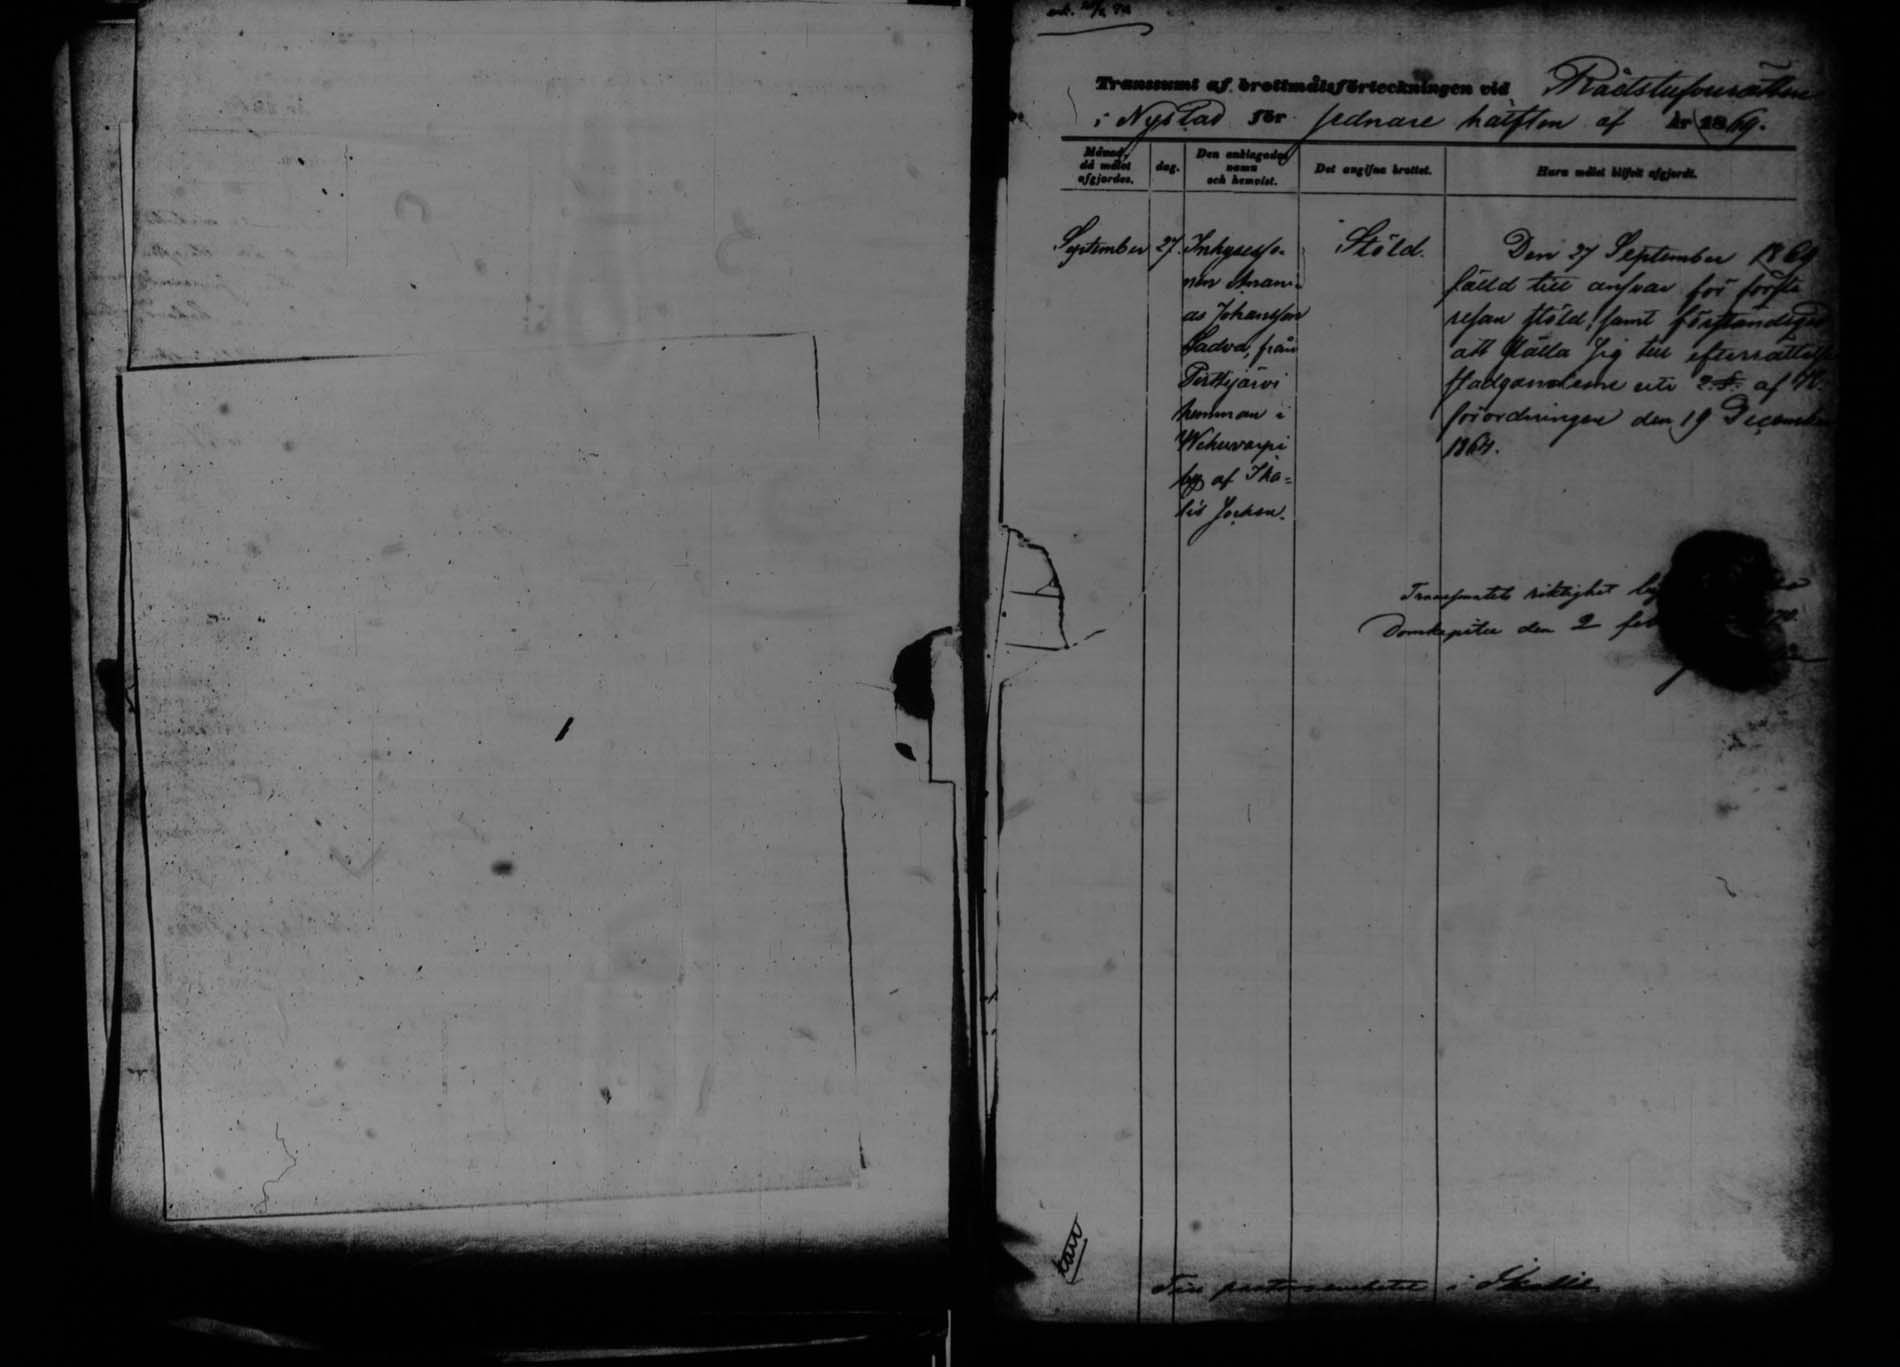 Transsumt af brottmålsförteckningen vid Rådstufvurätten
i Nystad för sednare hälften af år 1869.
Månad, då målet afgjordes.
dag.
Den anklagades namn och hemvist.
Det angifna brottet.
Huru målet blifvit afgjordt.
September 27.
Inhysesso-
nen Anani-
as Johansson
Ladva, från
Perttijärvi
hemman i
Wehuvarpi
by af Ika-
lis Socken.
Stöld.
Den 27 September 1869
fälld till ansvar för första
resan stöld, samt förständigad
att ställa sig till efterrättelse
stadgandena uti 2 §. af
förordningen den 19 December
1864.
Transsumtets riktighet
Domkapitel den 2
Till pastorsembetet i Ikalis